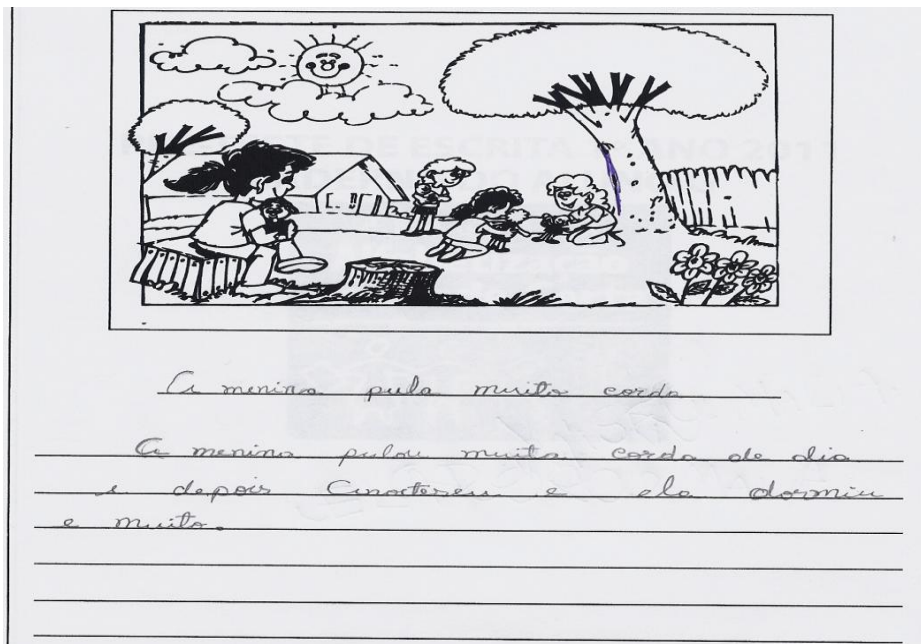 A menina pula muita corda
A menina pulou muita corda de dia
e depois Cinoiteseu e ela dormiu
e muito.